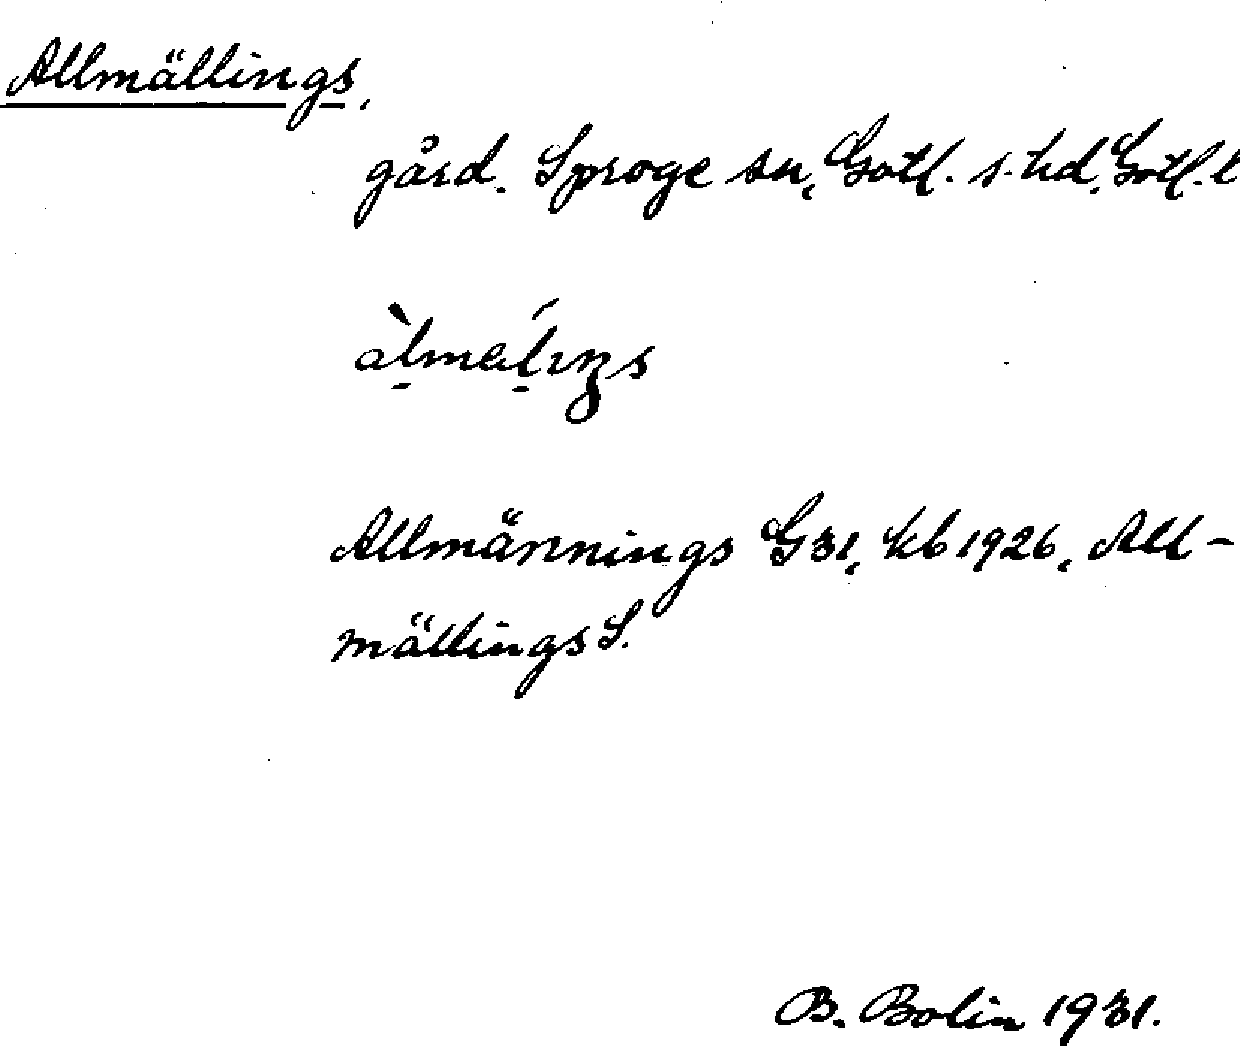 Allmällings,
gård. Sproge sn, Gotl. s. hd, Gotl. l
àlmalıŋs
Allmännings G31, kb 1926, All-
mällings S.
B. Bolin 1931.